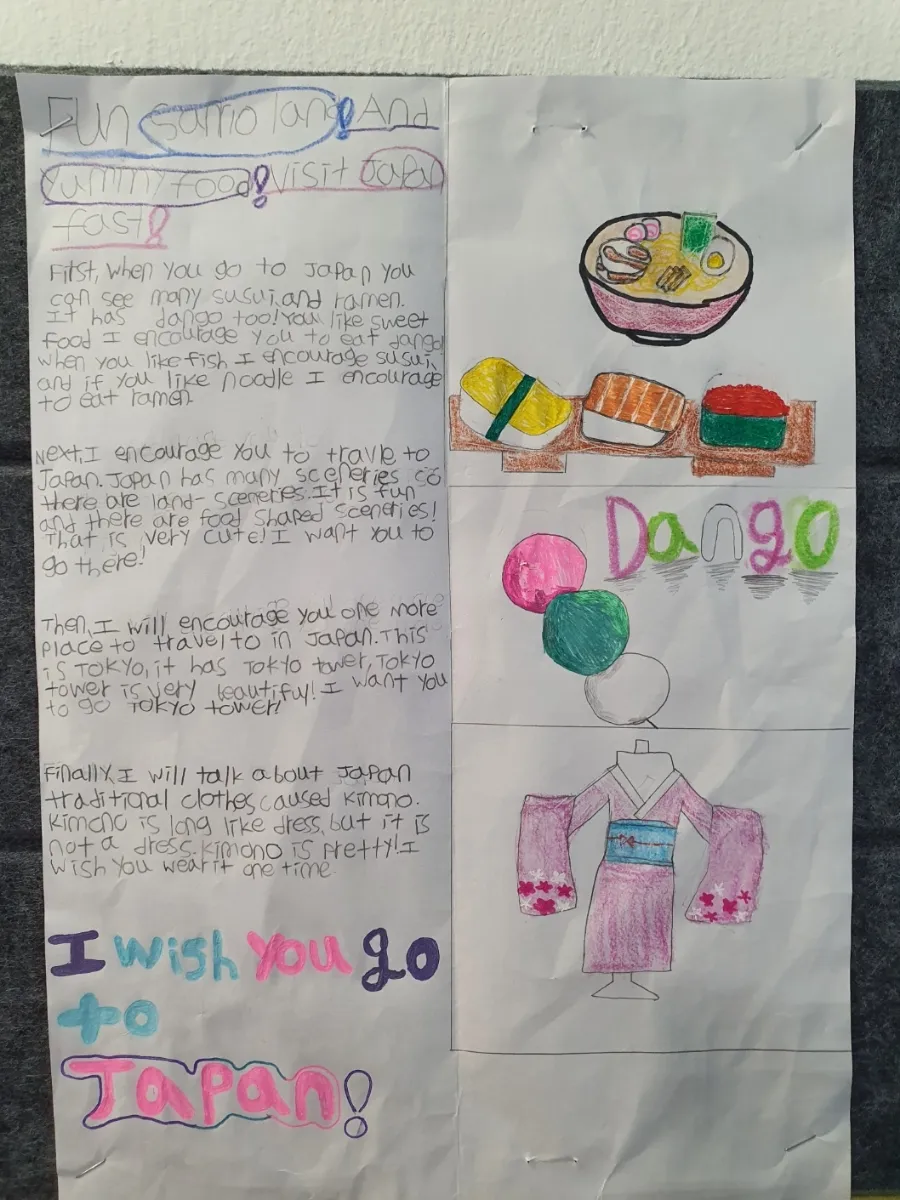 Fun Sanrio land! And
Yummy food! Visit Japan
fast!
First, when you go to Japan you
can see many susui, and ramen.
It has dango too! You like sweet
food I encourage you to eat dango
when you like fish, I encourage susui,
and if you like noodle I encourage
to eat ramen.
Next, I encourage you to travle to
Japan. Japan has many sceneries so
there are land-sceneries. It is fun
and there are food shaped sceneries!
That is very cute! I want you to
go there!
Then, I will encourage you one more
place to travel, to in Japan. This
is Tokyo, it has Tokyo tower, Tokyo
tower is very beautiful! I want you
to go Tokyo tower!
Finally, I will talk about Japan
traditional clothes, caused kimono.
Kimono is long like dress, but it is
not a dress. Kimono is pretty! I
wish you wear it one time.
I wish you go
to
Japan!
Dango